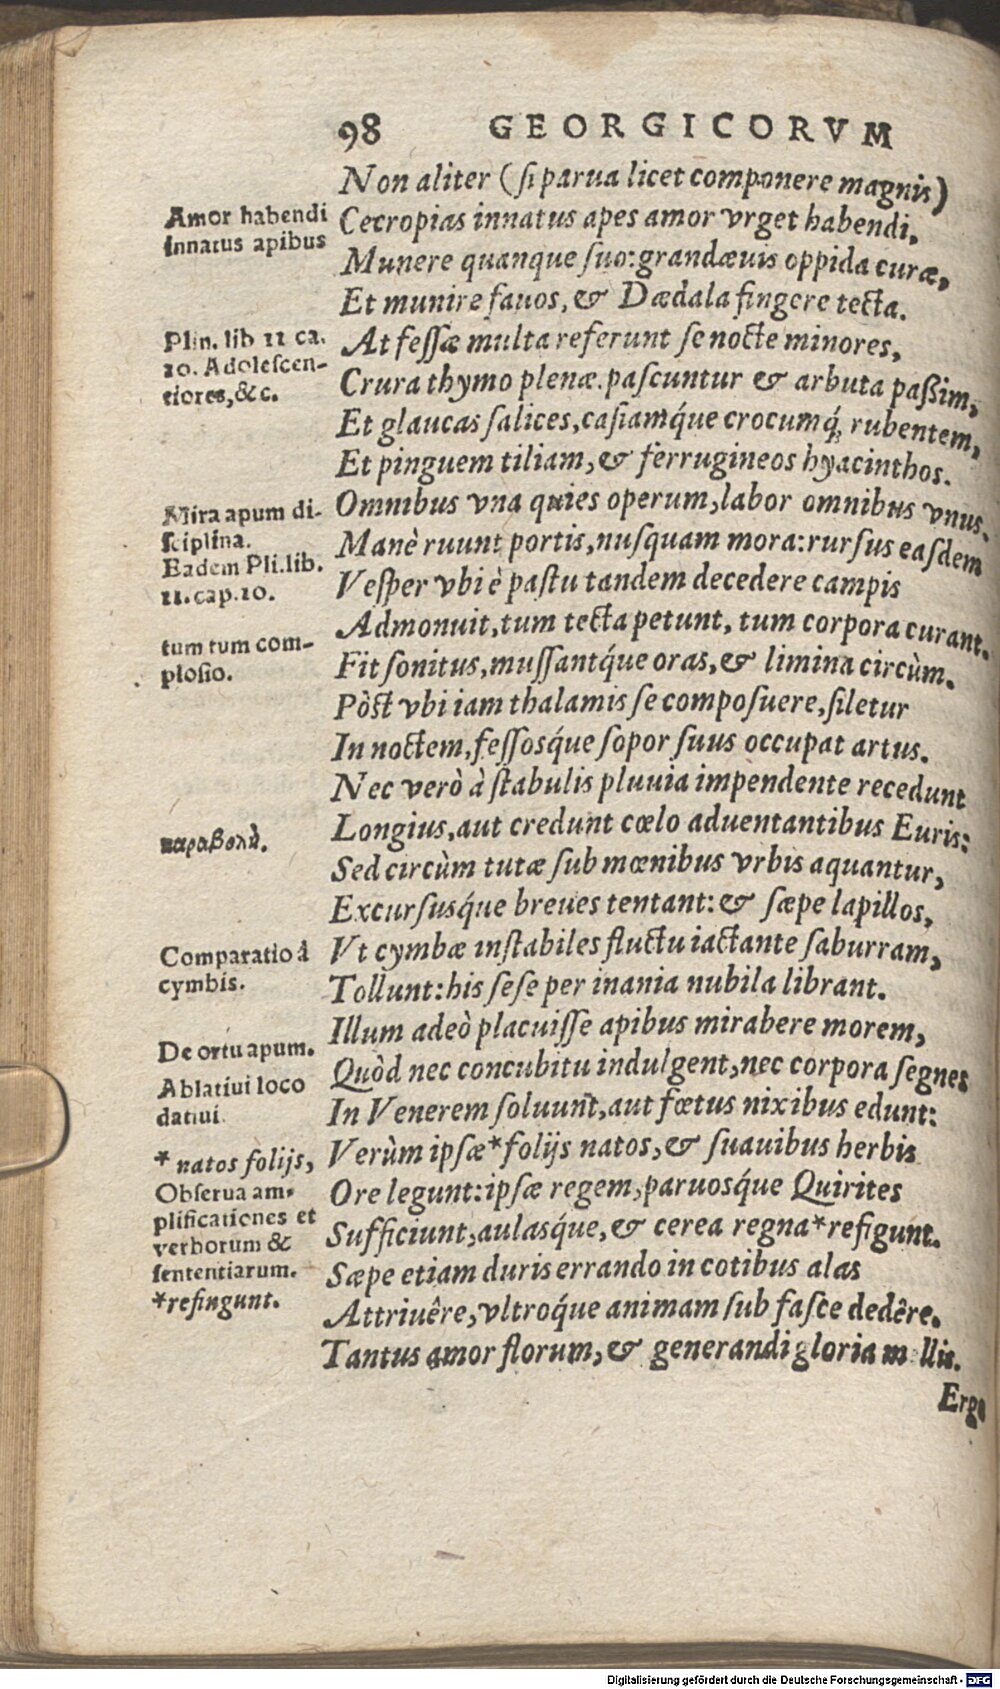 98 GEORGICORVM
Non aliter (si parua licet componere magnis)
Amor habendi
innatus apibus
Cecropias innatus apes amor vrget habendi,
Munere quanque suo: grandæuis oppida curæ,
Et munire fauos, & Dædala fingere tecta.
Plin. lib 11 ca.
10. Adolescen-
tiores, &c.
At fessæ multa referunt se nocte minores,
Crura thymo plenæ. pascuntur & arbuta paßim,
Et glaucas salices, casiamq́ue crocumq́; rubentem,
Et pinguem tiliam, & ferrugineos hyacinthos.
Mira apum di-
sciplina.
Eadem Pli. lib.
11. cap. 10.
Omnibus vna quies operum, labor omnibus vnus.
Manè ruunt portis, nusquam mora: rursus easdem
Vesper vbi è pastu tandem decedere campis
Admonuit, tum tecta petunt, tum corpora curant.
tum tum com-
plosio.
Fit sonitus, mussantq́ue oras, & limina circùm.
Pòst vbi iam thalamis se composuere, siletur
In noctem, fessosq́ue sopor suus occupat artus.
Nec verò à stabulis pluuia impendente recedunt
παραβολὴ.
Longius, aut credunt cœlo aduentantibus Euris:
Sed circùm tutæ sub mœnibus vrbis aquantur,
Excursusq́ue breues tentant: & sæpe lapillos,
Comparatio à
cymbis.
Vt cymbæ instabiles fluctu iactante saburram,
Tollunt: his sese per inania nubila librant.
De ortu apum.
Illum adeò placuisse apibus mirabere morem,
Ablatiui loco
datiui
Quòd nec concubitu indulgent, nec corpora segnes
In Venerem soluunt, aut fœtus nixibus edunt:
* natos folijs,
Verùm ipsæ * folijs natos, & suauibus herbis
Obserua am-
plificationes et
verborum &
sententiarum.
*refingunt.
Ore legunt: ipsæ regem, paruosq́ue Quirites
Sufficiunt, aulasq́ue, & cerea regna * refigunt.
Sæpe etiam duris errando in cotibus alas
Attriuêre, vltroq́ue animam sub fasce dedêre.
Tantus amor florum, & generandi gloria m llis.
Ergo
Digitalisierung gefördert durch die Deutsche Forschungsgemeinschaft - DFG